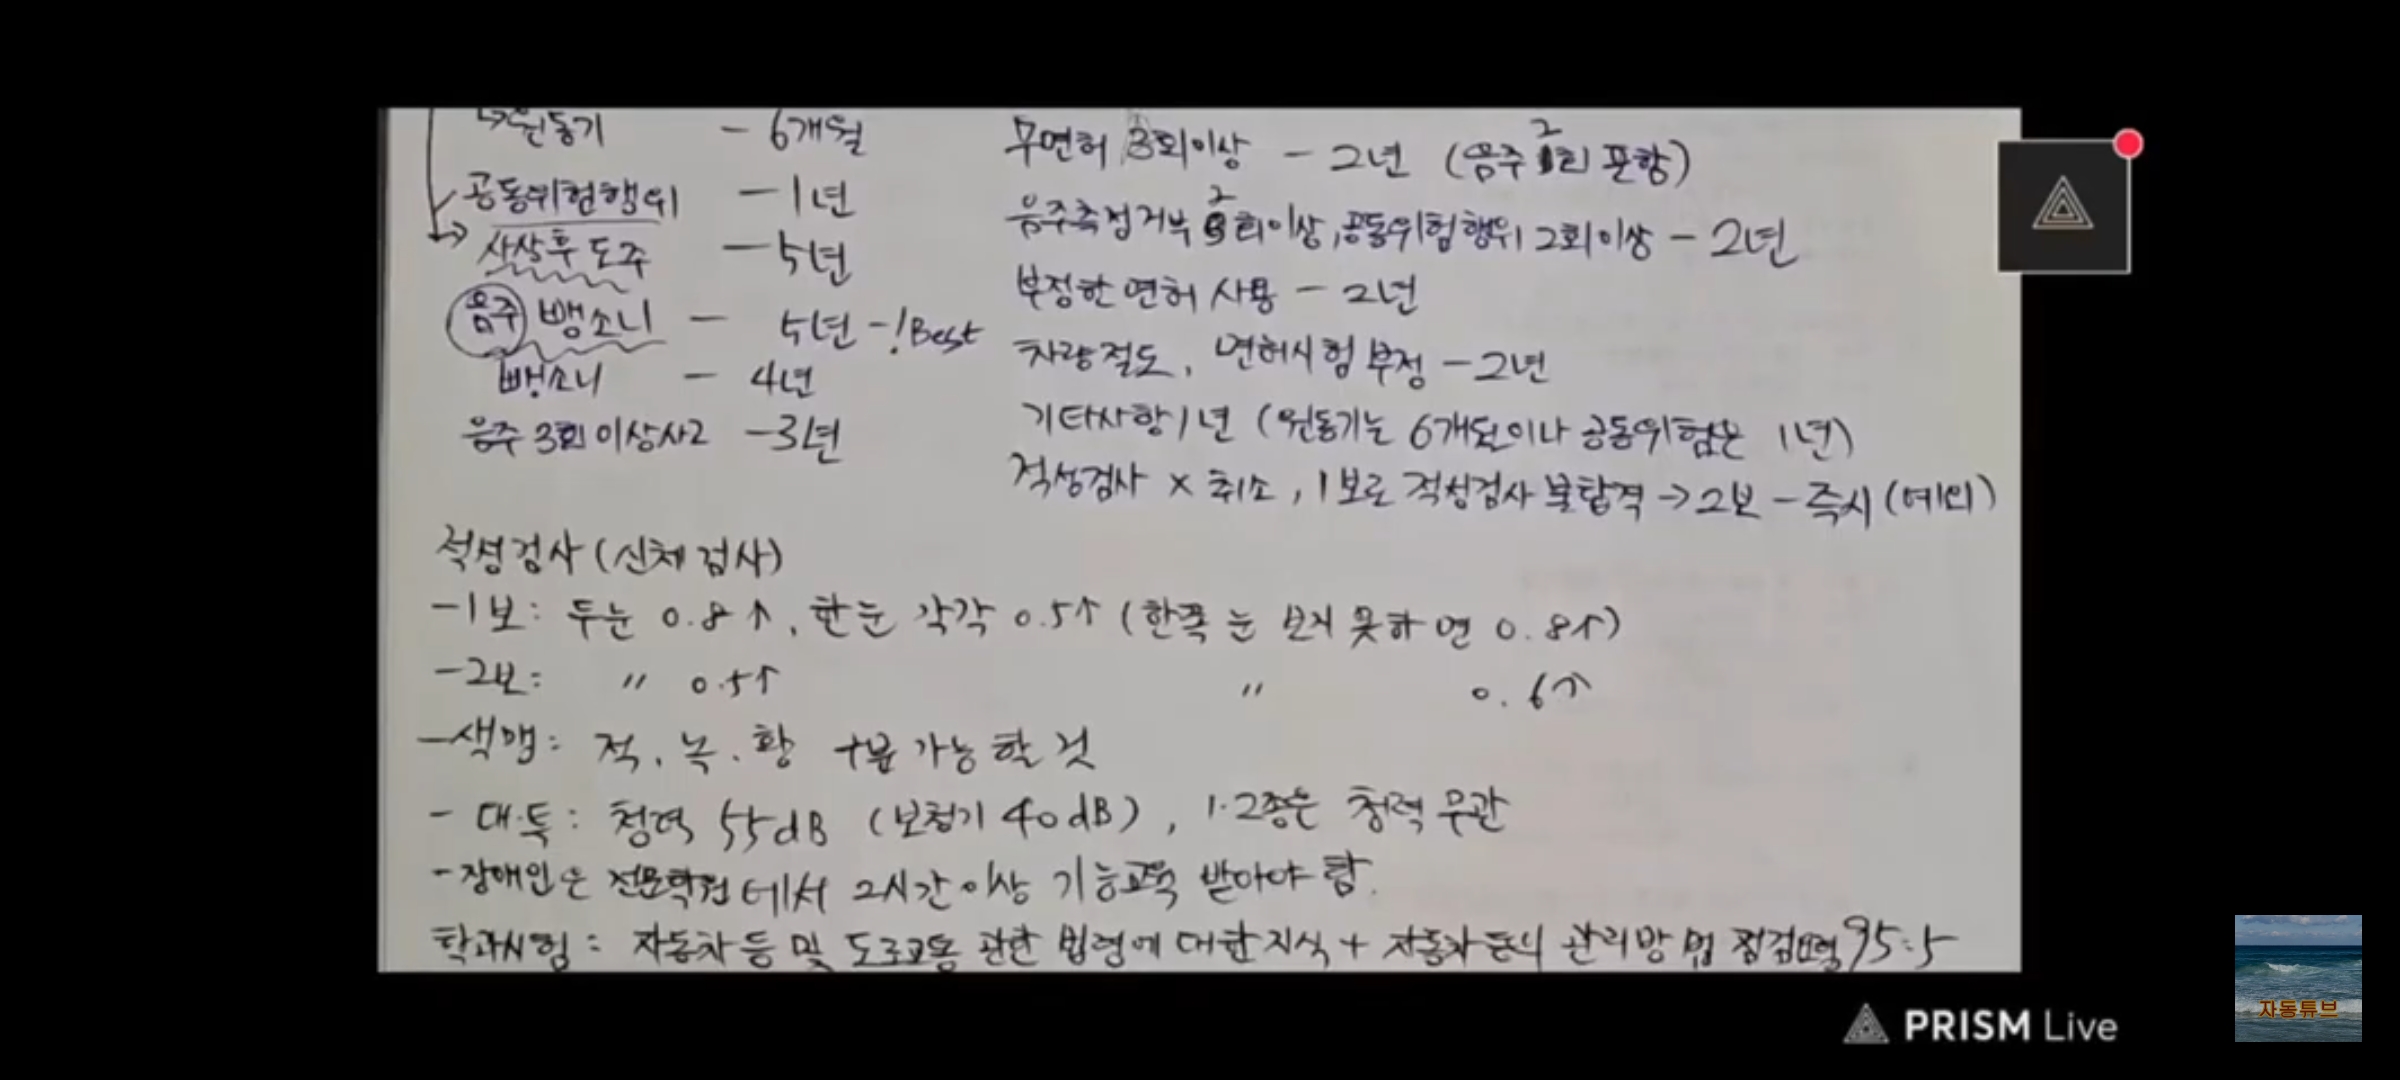 ↳원동기 - 6개월
공동위험행위 - 1년
→ 사상후 도주 - 5년
음주 뺑소니 - 5년 - ! Best
뺑소니 - 4년
음주 3회 이상사고 - 3년
무면허 3회이상 - 2년 (음주 2회 포함)
음주측정거부 2회이상, 공동위험행위 2회이상 - 2년
부정한 면허 사용 - 2년
차량절도, 면허시험 부정 - 2년
기타사항 1년 (원동기는 6개월이나 공동위험은 1년)
적성검사 x 취소, 1보로 적성검사 불합격 → 2보 - 즉시 (예외)
적성검사 (신체검사)
- 1보: 두눈 0.8↑, 한눈 각각 0.5↑ (한쪽 눈 보지 못하면 0.8↑)
- 2보: 〃 0.5↑ 〃 0.6↑
- 색맹: 적.녹.황 구분 가능할 것
- 대.특: 청력 55dB (보청기 40dB), 1.2종은 청력 무관
- 장애인은 전문학원에서 2시간 이상 기능교육 받아야 함.
학과시험: 자동차 등 및 도로교통 관한 법령에 대한 지식 + 자동차 등의 관리방법 점검 95:5
PRISM Live
자동튜브